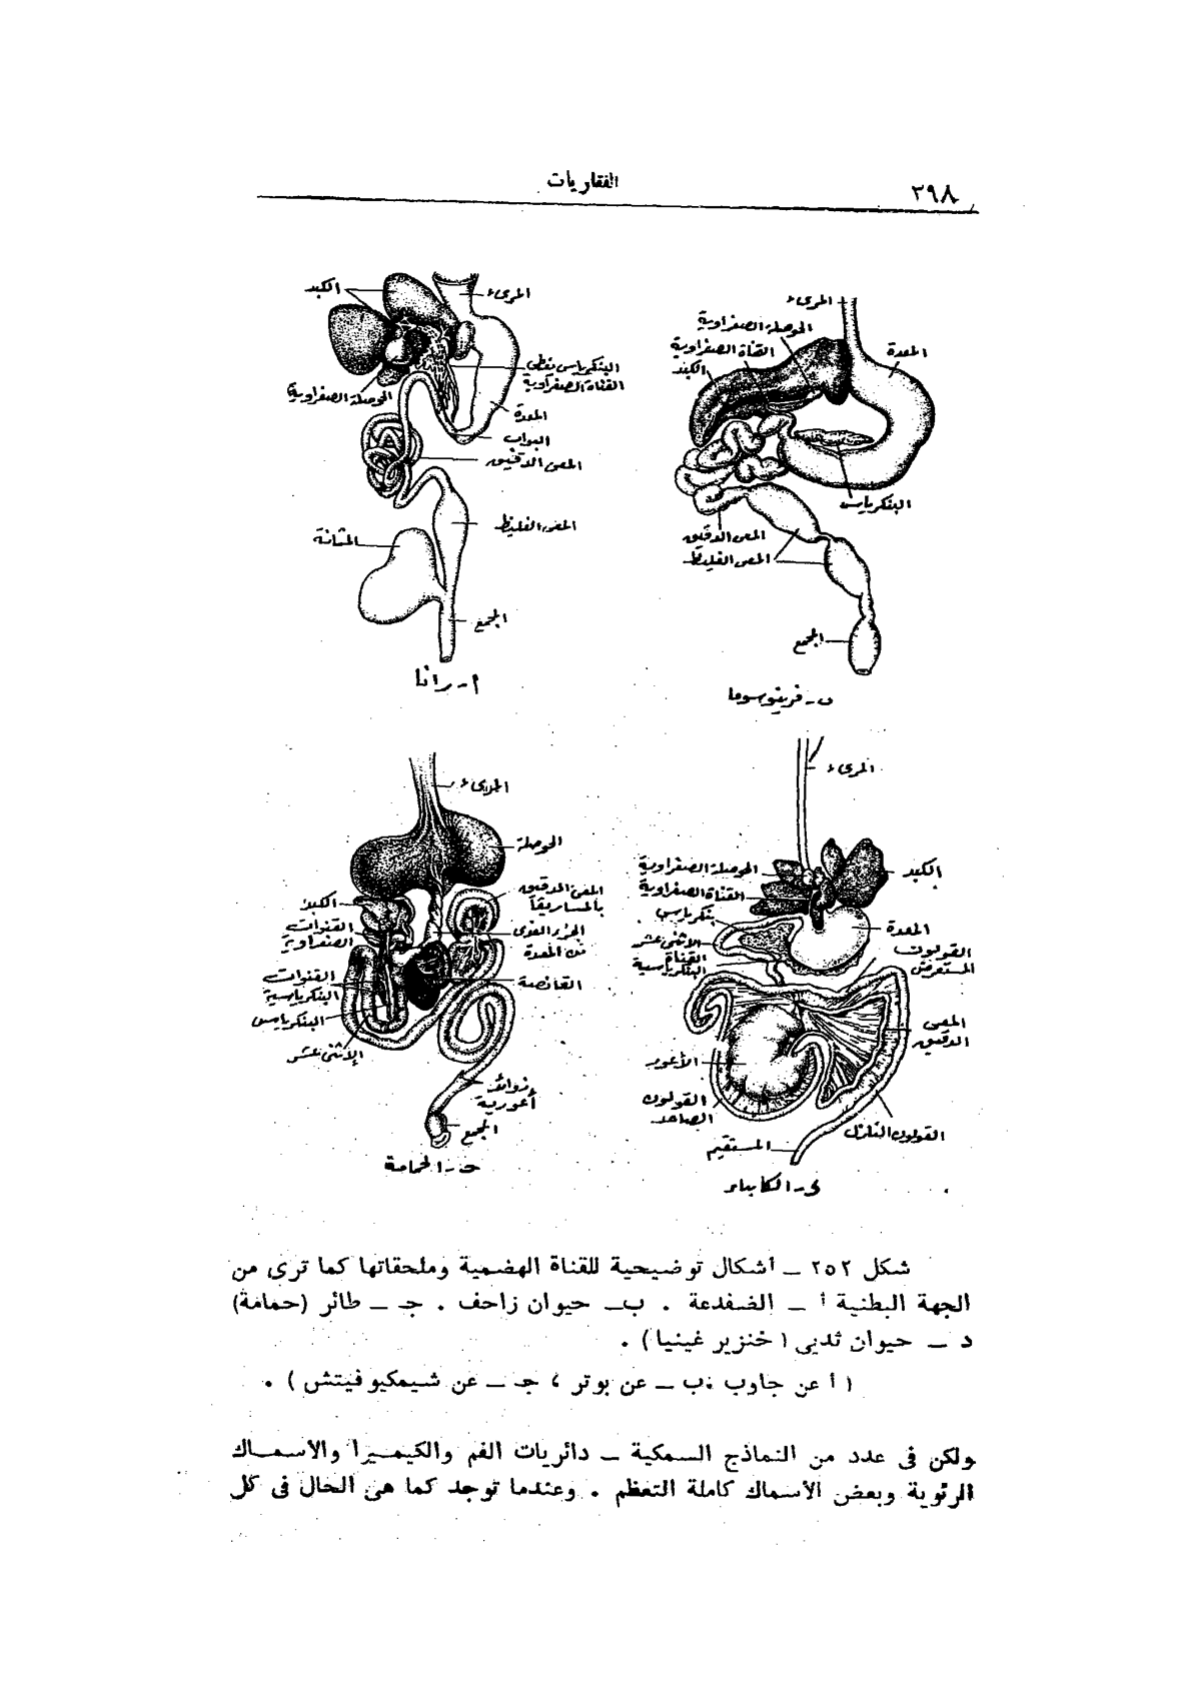 ٣٩٨
الفقاريات
المرىء
الكبد
البنكرياس يغطى
القناة الصفراوية
الحوصلة الصفراوية
المعدة
البواب
المعى الدقيق
المعى الغليظ
المثانة
المجمع
أ - رانا
المرىء
الحوصلة الصفراوية
القناة الصفراوية
الكبد
المعدة
البنكرياس
المعى الدقيق
المعى الغليظ
المجمع
ب - فرينوسوما
المرىء
الحوصلة
المعى الدقيق
بالمساريقا
الكبد
القنوات
الصفراوية
الجزء الغدى
من المعدة
القانصة
القنوات
البنكرياسية
البنكرياس
الإثنى عشر
زوائد
أعورية
المجمع
جـ - الحمامة
المرىء
الحوصلة الصفراوية
القناة الصفراوية
بنكرياس
الاثنى عشر
القناة
البنكرياسية
الكبد
المعدة
القولون
المستعرض
المعى
الدقيق
الأعور
القولون
الصاعد
القولون النازل
المستقيم
د - الكابياء
شكل ٢٥٢ ــ أشكال توضيحية للقناة الهضمية وملحقاتها كما ترى من
الجهة البطنية أ ــ الضفدعة . ب ــ حيوان زاحف . جـ ــ طائر (حمامة)
د ــ حيوان ثديى ( خنزير غينيا ) .
( أ عن جاوب ، ب ــ عن بوتر ، جـ ــ عن شيمكيوفيتش ) .
ولكن فى عدد من النماذج السمكية ــ دائريات الفم والكيميرا والأسماك
الرئوية وبعض الأسماك كاملة التعظم . وعندما توجد كما هى الحال فى كل